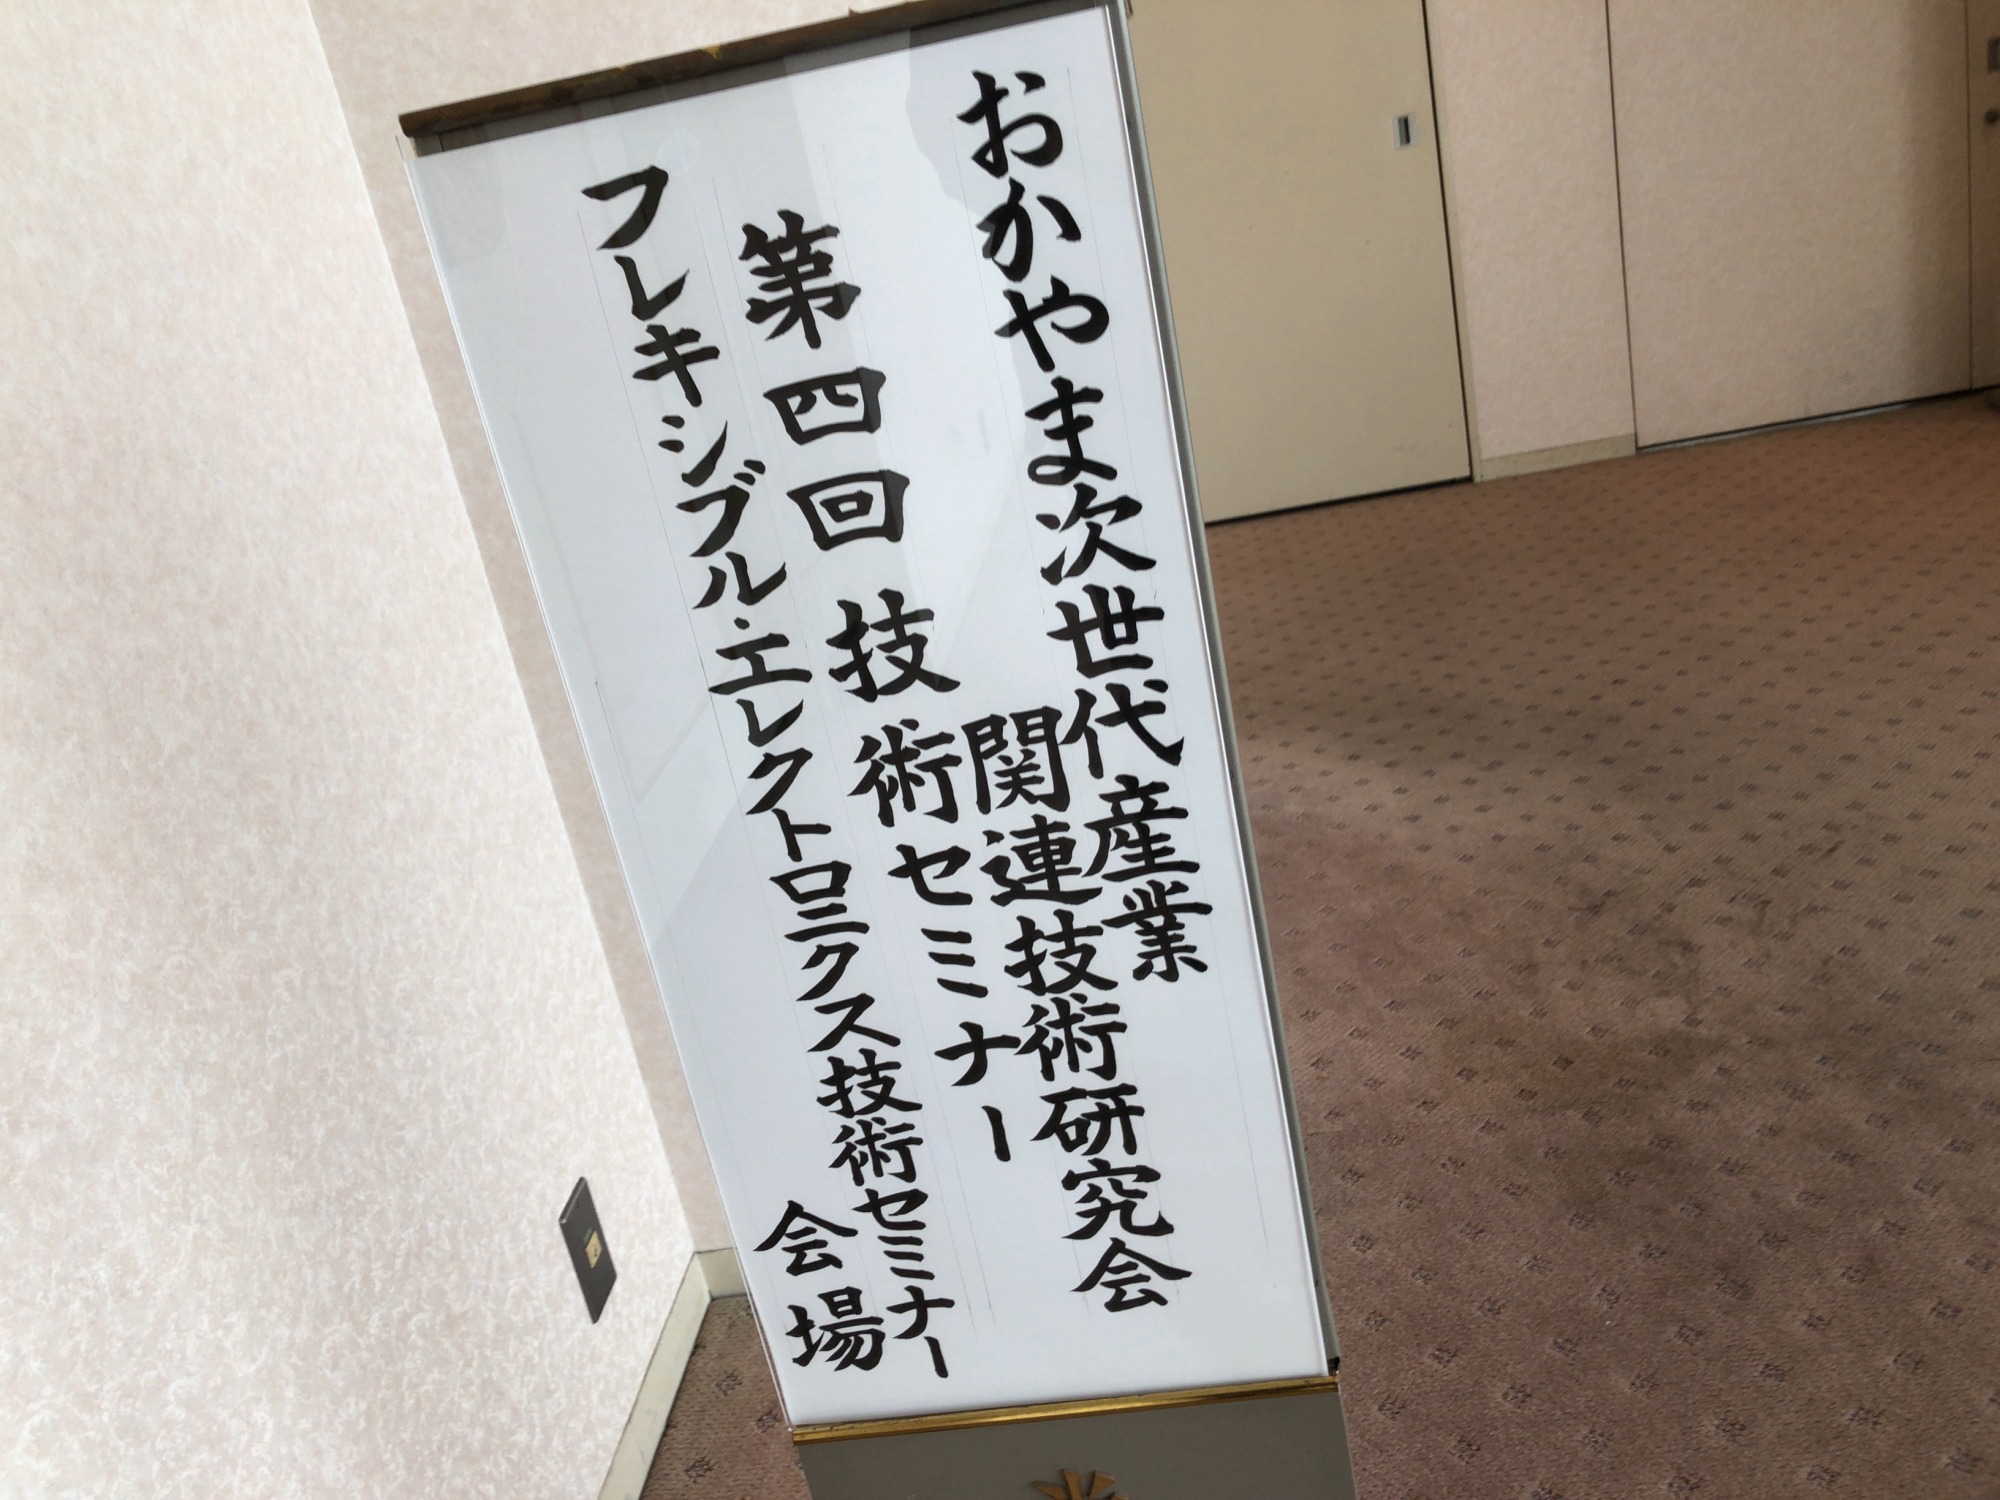 おかやま次世代産業
関連技術研究会
第四回技術セミナー
フレキシブル・エレクトロニクス技術セミナー
会場